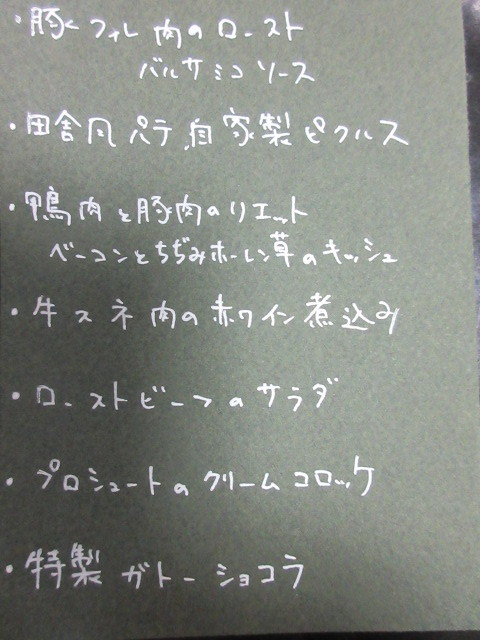 ・豚ヒレ肉のロースト
バルサミコソース
・田舎風パテ、自家製ピクルス
・鴨肉と豚肉のリエット
ベーコンとちぢみホーレン草のキッシュ
・牛スネ肉の赤ワイン煮込み
・ローストビーフのサラダ
・プロシュートのクリームコロッケ
・特製ガトーショコラ